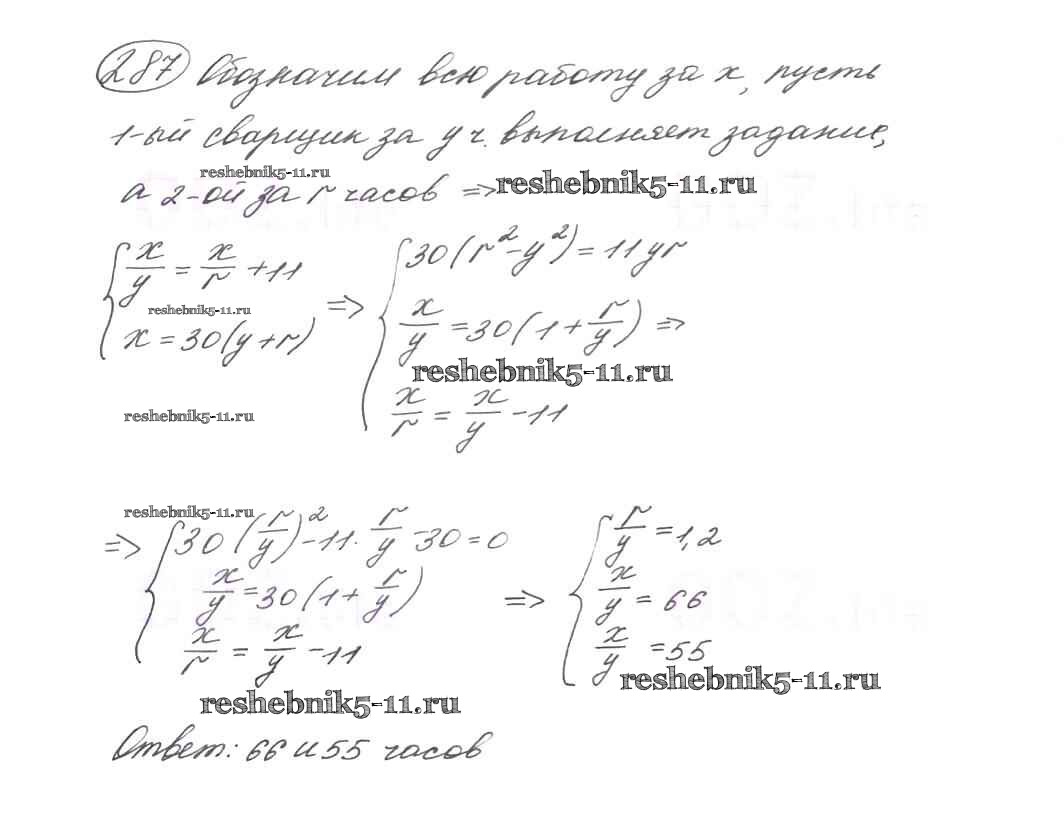 287 Обозначим всю работу за x, пусть
1-ый сварщик за y ч. выполняет задание,
reshebnik5-11.ru
а 2-ой за r часов => reshebnik5-11.ru
{ x/y = x/r + 11
x = 30(y+r)
=> { 30(r²-y²) = 11yr
x/y = 30(1 + r/y) =>
x/r = x/y - 11
reshebnik5-11.ru
reshebnik5-11.ru
reshebnik5-11.ru
reshebnik5-11.ru
=> { 30(r/y)² - 11·r/y - 30 = 0
x/y = 30(1 + r/y)
x/r = x/y - 11
=> { r/y = 1,2
x/y = 66
x/y = 55
reshebnik5-11.ru
reshebnik5-11.ru
Ответ: 66 и 55 часов